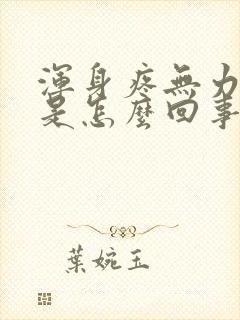 渾身疼無力
是怎麼回事
葉婉玉